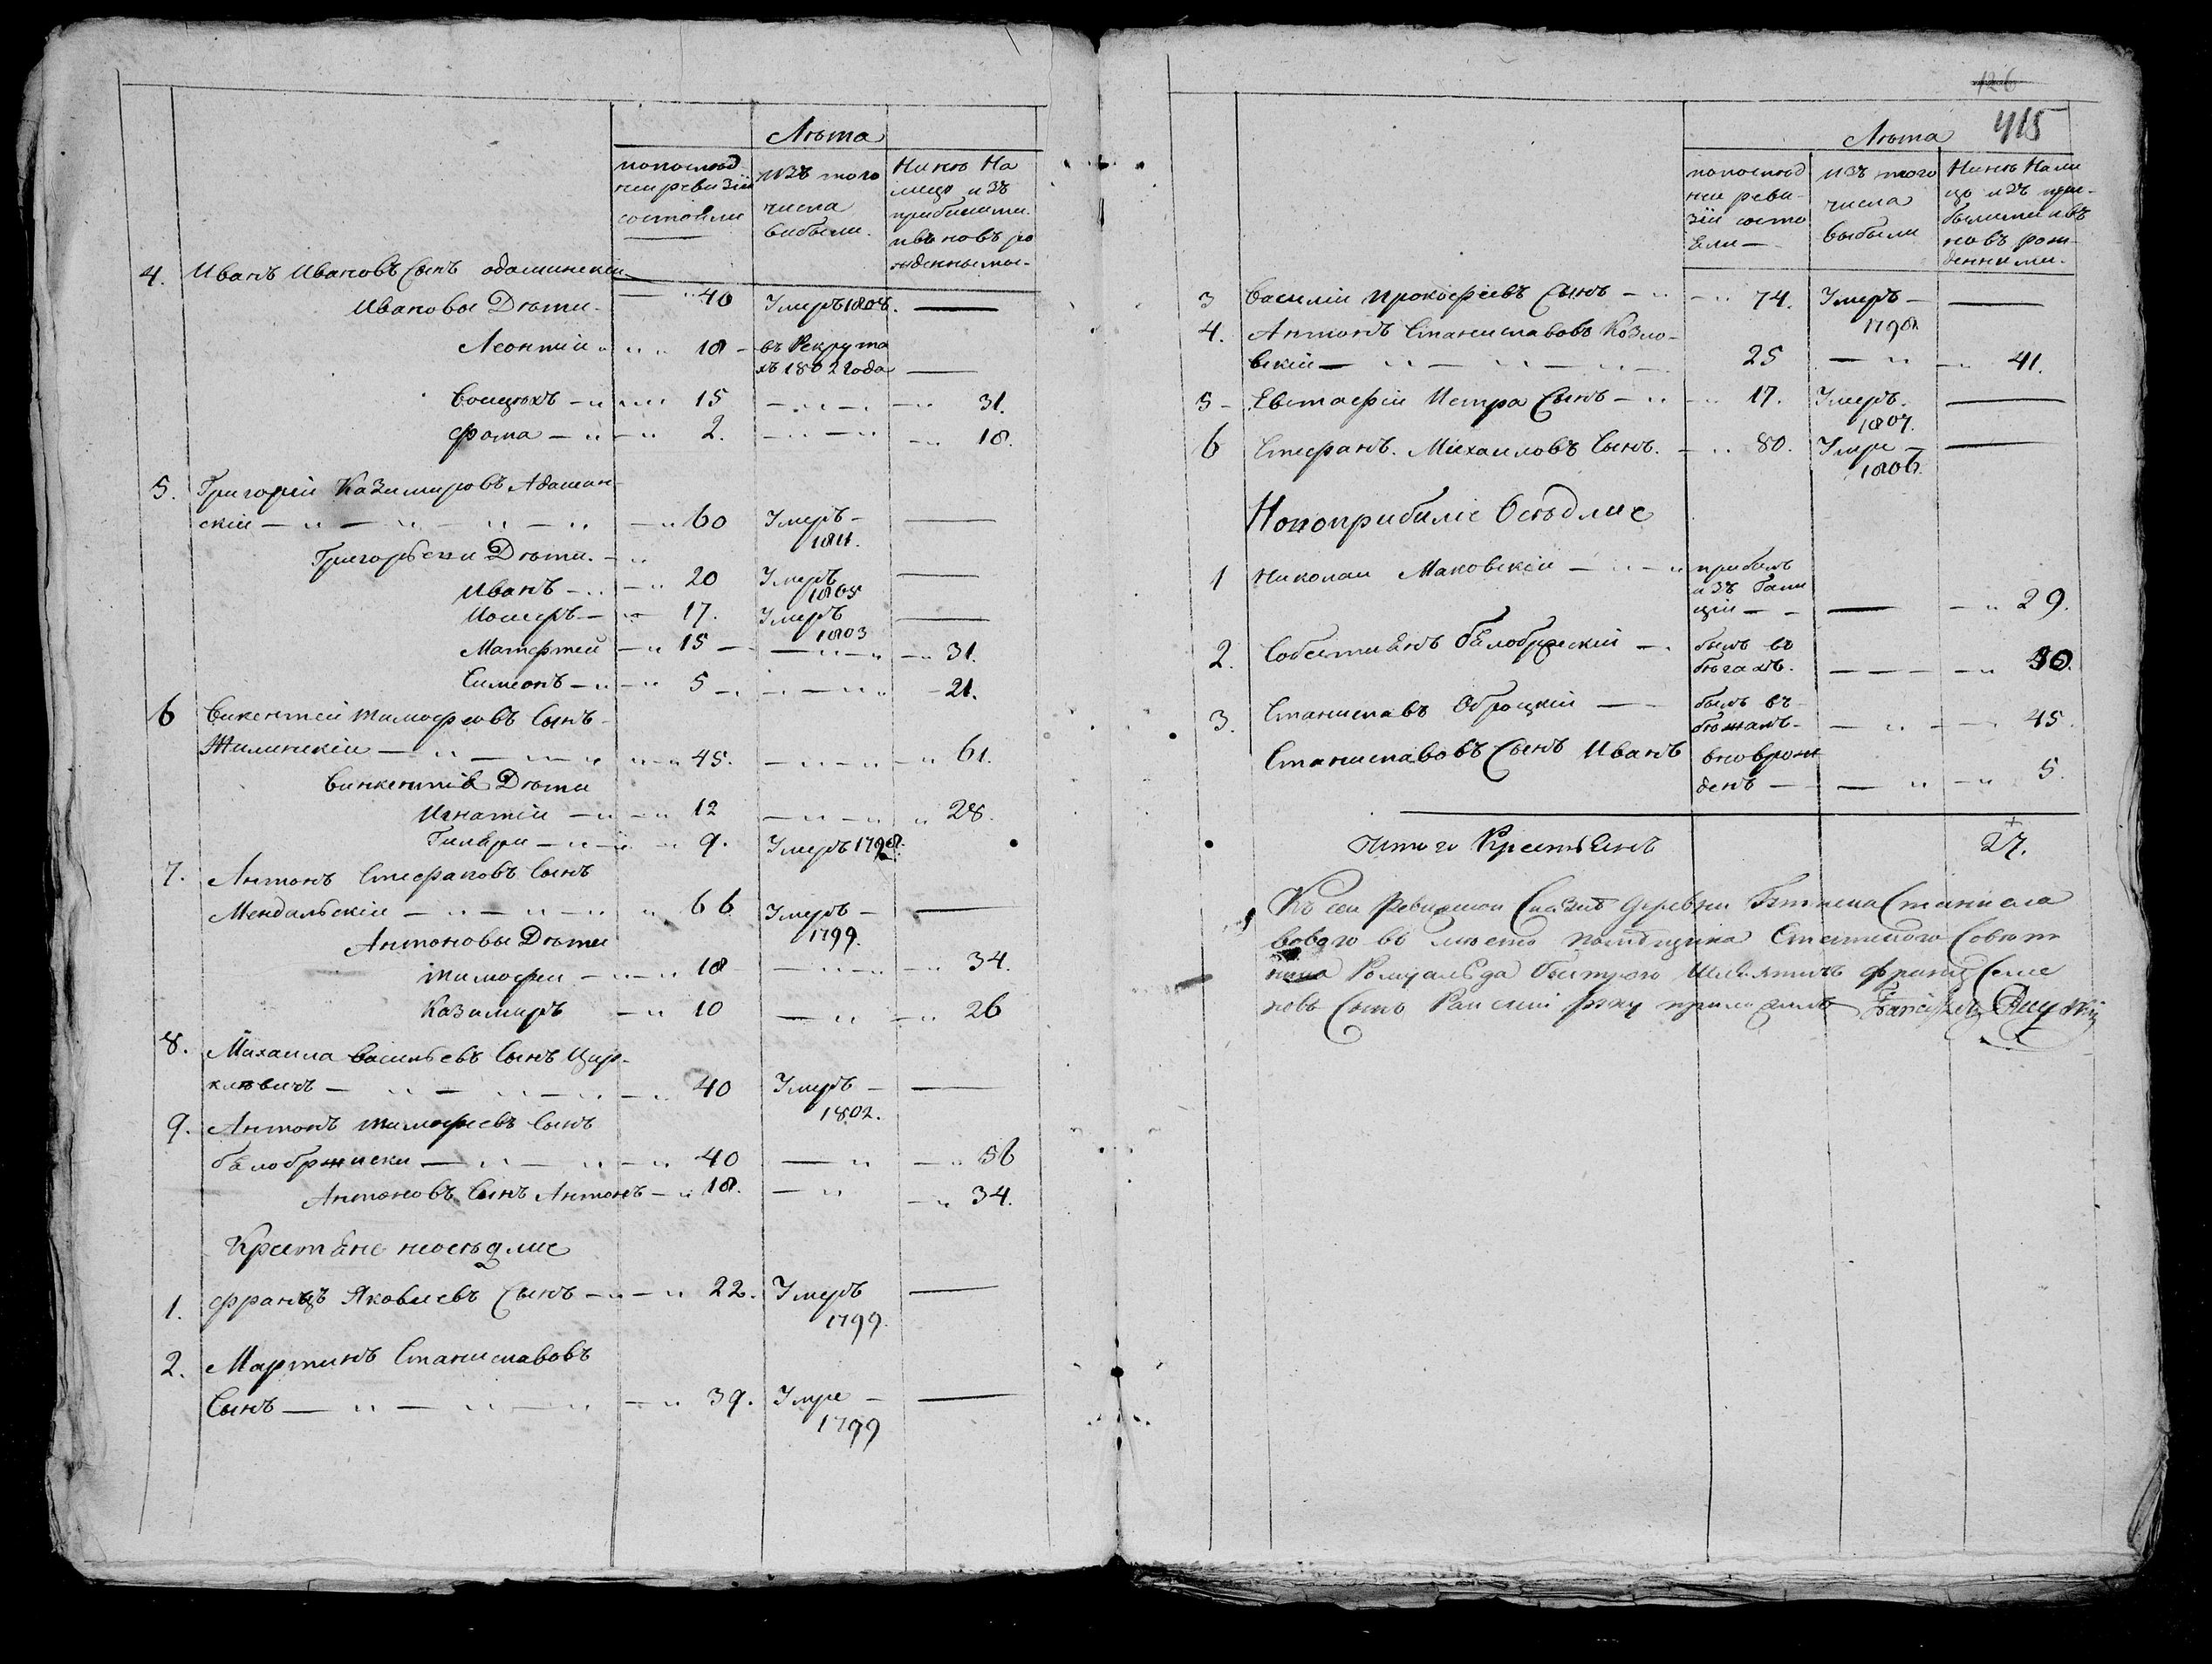 Лѣта
попослѣд
неи ревизіи
состояли
изъ того
числа
выбыли.
Нинѣ На
лицо изъ
прибылими.
ивъ новъ ро
жденными.
4. Иванъ Ивановъ Сынъ адашинскіи
— 40 Умеръ 1808. —
Ивановы Дѣти.
Леонтіи 18 въ Рекрута
хъ 1802 Года —
Воицѣхъ 15 — 31.
Фома 2. — 18.
5. Григорій Казимировъ Адашин
скіи 60 Умеръ —
1811.
Григорьевы Дѣти.
Иванъ 20 Умеръ —
1805
Иосифъ 17. Умеръ —
1803
Матфѣй 15 — 31.
Симеонъ 5 — 21.
6 Викентей тимофеовъ Сынъ
Жилинскіи 45. — 61.
Викентія Дѣти
Игнатіи 12 — 28.
Гиляри 9. Умеръ 1798.
7. Антонъ Стефановъ Сынъ
Мендальскіи 66 Умеръ —
1799.
Антоновы Дѣти
тимофеи 18 — 34.
Казимиръ 10 — 26
8. Михаила Васильевъ Сынъ Цир-
клѣвичъ 40 Умеръ —
1802.
9. Антонъ тимофеевъ Сынъ
бялобржиски 40 — 56
Антоновъ Сынъ Антонъ 18. — 34.
Крестяне неосѣдліе
1. Францъ Яковлевъ Сынъ 22. Умеръ —
1799.
2. Мартинъ Станиславовъ
Сынъ 39. Умре —
1799
126
415
Лѣта
попослѣд
неи реви-
зіи состо
яли —
изъ того
числа
выбыли
Нинѣ Нали
цо изъ при-
былими ивъ
новъ рож-
денними.
3 Василіи прокофіевъ Сынъ 74. Умеръ —
1798
4. Антонъ Станиславовъ Козло-
вскіи 25 — 41.
5 Евстафіи Петра Сынъ 17. Умеръ. —
1807.
6 Стефанъ. Михаиловъ Сынъ. 80. Умре —
1806.
Новоприбиліе Осѣдліе
1 Николаи Маковскіи — прибилъ
изъ Гали
ціи — 29.
2. Собестиянъ бялобржескіи — билъ въ
бѣгахъ. — 30.
3. Станиславъ Оброцкіи — билъ въ
бѣжалъ — 45.
Станиславовъ Сынъ Иванъ вновърож
денъ — 5.
Итого Крестьянъ 27.
Къ сеи Ревизскои Сказкѣ деревни Станисла
вового въ мѣсто помѣщика Статского Совѣт
ника Ромуальда Быстрого Шляхтичъ Францъ Семе
новъ Сынъ руку приложилъ